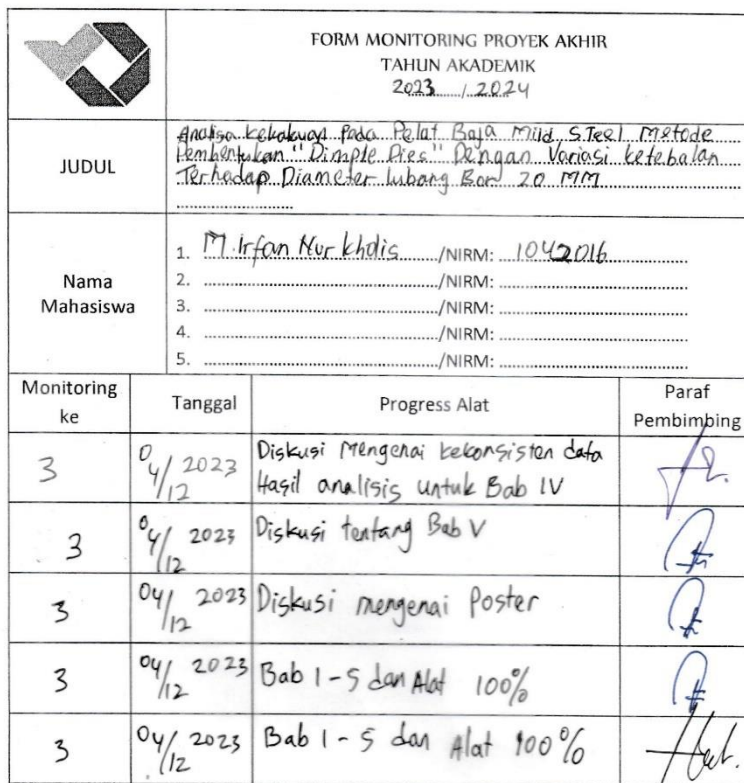 FORM MONITORING PROYEK AKHIR
TAHUN AKADEMIK
2023 / 2024
JUDUL
Analisa kekakuan Pada Pelat Baja Mild STeel Metode
Pembentukan "Dimple Dies" Dengan Variasi ketebalan
Terhadap Diameter lubang Bor 20 MM
Nama
Mahasiswa
1. M. Irfan Nur kholis /NIRM: 1042016
2. /NIRM:
3. /NIRM:
4. /NIRM:
5. /NIRM:
Monitoring ke Tanggal Progress Alat Paraf Pembimbing
3 04/12 2023 Diskusi Mengenai kekonsisten data
Hasil analisis untuk Bab IV
3 04/12 2023 Diskusi tentang Bab V
3 04/12 2023 Diskusi mengenai Poster
3 04/12 2023 Bab 1 - 5 dan Alat 100%
3 04/12 2023 Bab 1 - 5 dan Alat 100%